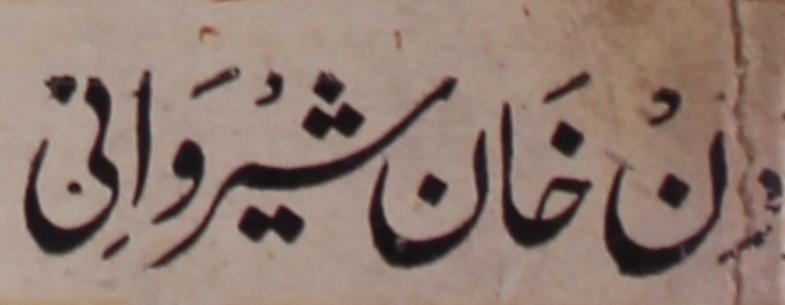 نُ خَان شیُروَانِی